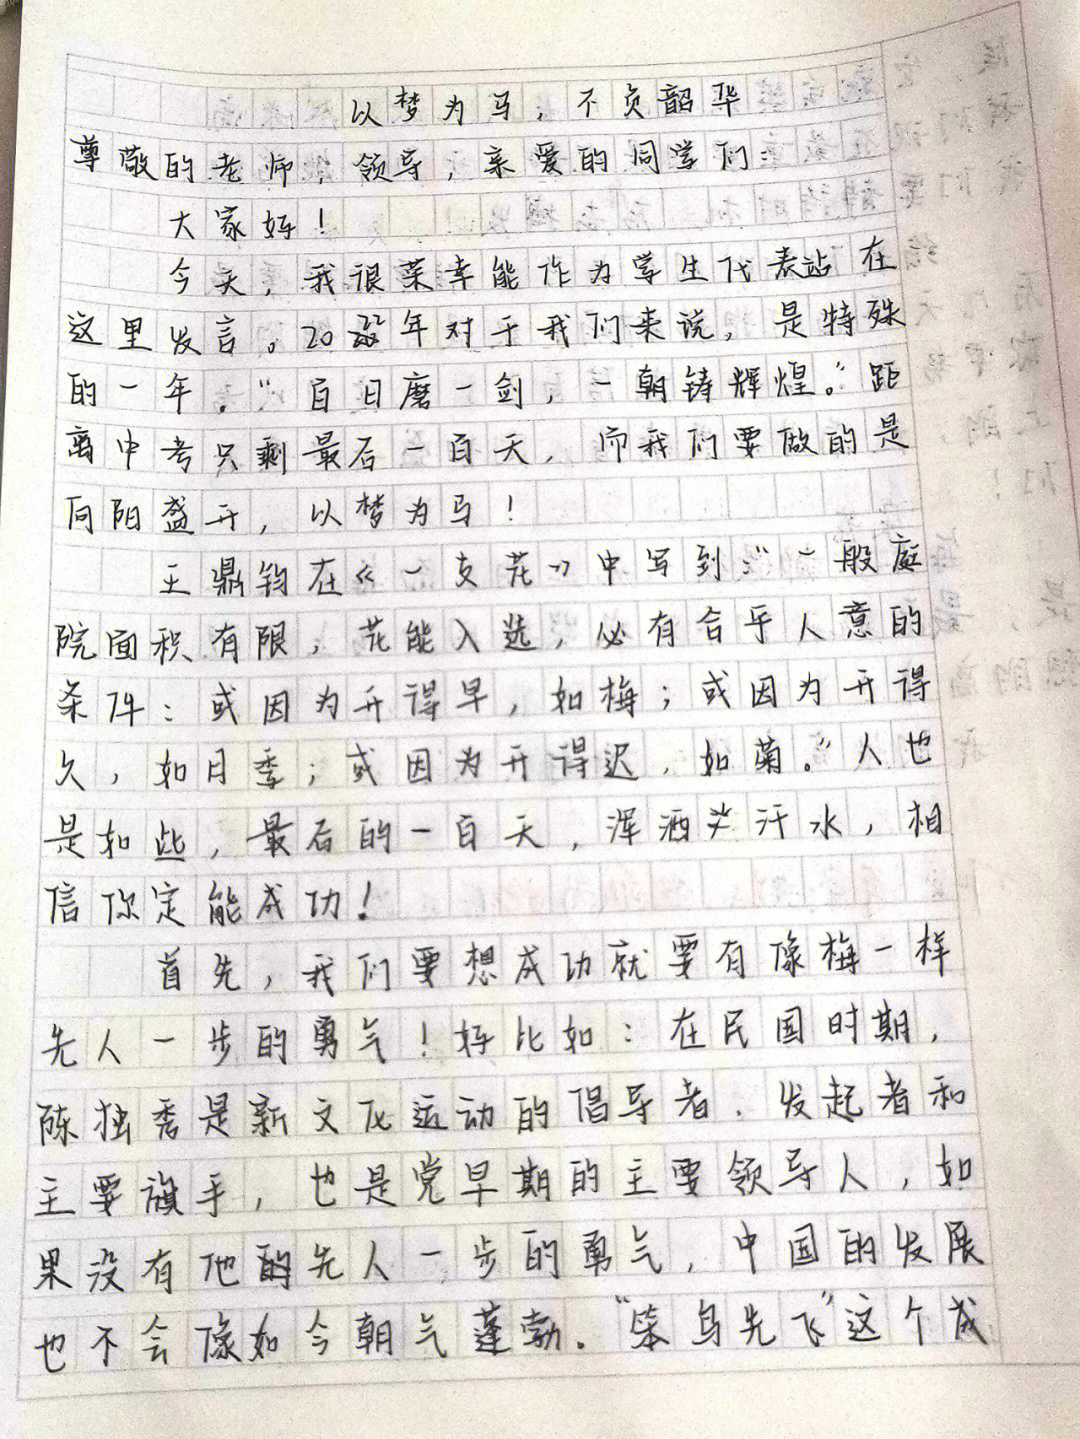 以梦为马，不负韶华
尊敬的老师，领导，亲爱的同学们
大家好！
今天，我很荣幸能作为学生代表站在
这里发言。20年对于我们来说，是特殊
的一年。“百日磨一剑，一朝铸辉煌。”距
离中考只剩最后一百天，而我们要做的是
向阳盛开，以梦为马！
王鼎钧在《一支花》中写到：“一般庭
院面积有限，花能入选，必有合乎人意的
条件：或因为开得早，如梅；或因为开得
久，如月季；或因为开得迟，如菊。”人也
是如此，最后的一百天，浑洒汗水，相
信你定能成功！
首先，我们要想成功就要有像梅一样
先人一步的勇气！好比如：在民国时期，
陈独秀是新文化运动的倡导者、发起者和
主要旗手，也是党早期的主要领导人，如
果没有他的先人一步的勇气，中国的发展
也不会像如今朝气蓬勃。“笨鸟先飞”这个成